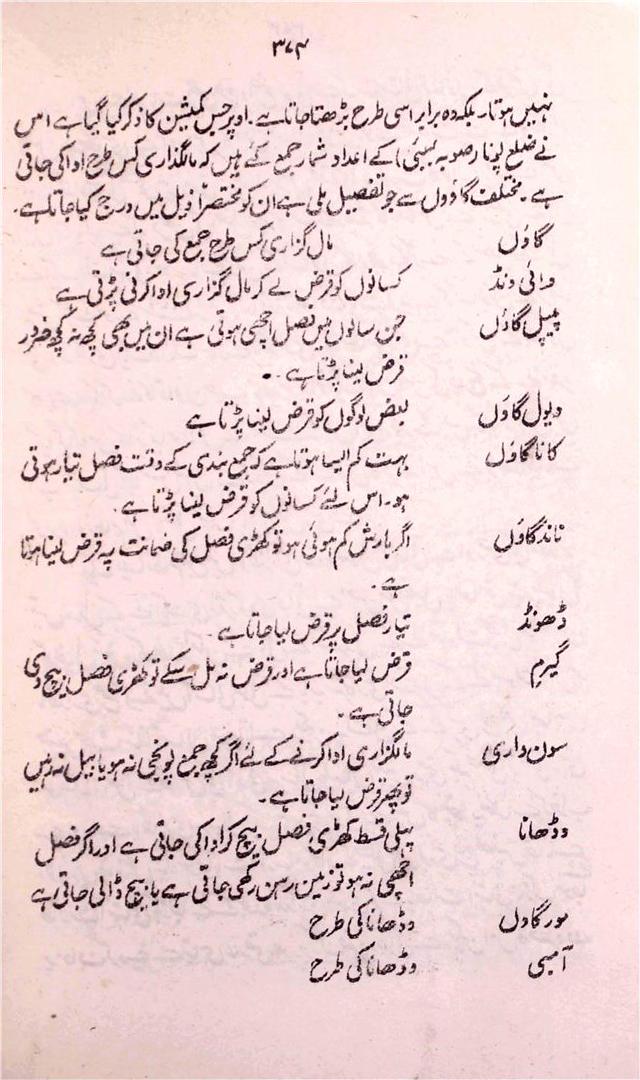 ۳۷۴
نہیں ہوتا۔ بلکہ وہ برابر اسی طرح بڑھتا جاتا ہے۔ اوپر جس کمیشن کا ذکر کیا گیا ہے اس
نے ضلع پونا (صوبہ بمبئی) کے اعداد شمار جمع کئے ہیں کہ مالگذاری کس طرح ادا کی جاتی
ہے۔ مختلف گاؤوں سے جو تفصیل ملی ہے ان کو مختصراً ذیل میں درج کیا جاتا ہے۔
گاؤں مال گزاری کس طرح جمع کی جاتی ہے
وائی ونڈ کسانوں کو قرض لے کر مال گزاری ادا کرنی پڑتی ہے
پمپل گاؤں جن سالوں میں فصل اچھی ہوتی ہے ان میں بھی کچھ نہ کچھ ضرور
قرض لینا پڑتا ہے۔
دیول گاؤں بعض لوگوں کو قرض لینا پڑتا ہے
کانا گاؤں بہت کم ایسا ہوتا ہے کہ جمع بندی کے وقت فصل تیار ہوتی
ہو۔ اس لئے کسانوں کو قرض لینا پڑتا ہے۔
ناند گاؤں اگر بارش کم ہوئی ہو تو کھڑی فصل کی ضمانت پہ قرض لینا ہوتا
ہے۔
ڈھونڈ تیار فصل پر قرض لیا جاتا ہے۔
گیرم قرض لیا جاتا ہے اور قرض نہ مل سکے تو کھڑی فصل بیچ دی
جاتی ہے۔
سون داری مالگزاری ادا کرنے کے لئے اگر کچھ جمع پونجی نہ ہو یا بیل نہ رہیں
تو پھر قرض لیا جاتا ہے۔
وڈھانا پہلی قسط کھڑی فصل بیچ کر ادا کی جاتی ہے اور اگر فصل
اچھی نہ ہو تو زمین رہن رکھی جاتی ہے یا بیچ ڈالی جاتی ہے
مورگاؤں وڈھانا کی طرح
آمبی وڈھانا کی طرح